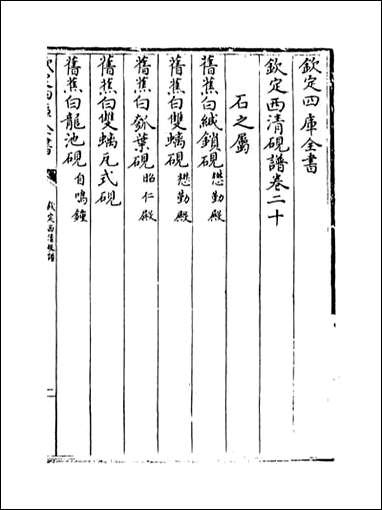 欽定四庫全書
欽定西清硯譜卷二十
石之屬
舊蕉白緘鎖硯 懋勤殿
舊蕉白雙螭硯 懋勤殿
舊蕉白瓠葉硯 昭仁殿
舊蕉白雙螭瓦式硯
舊蕉白龍池硯 自鳴鐘
欽定四庫全書
欽定西清硯譜